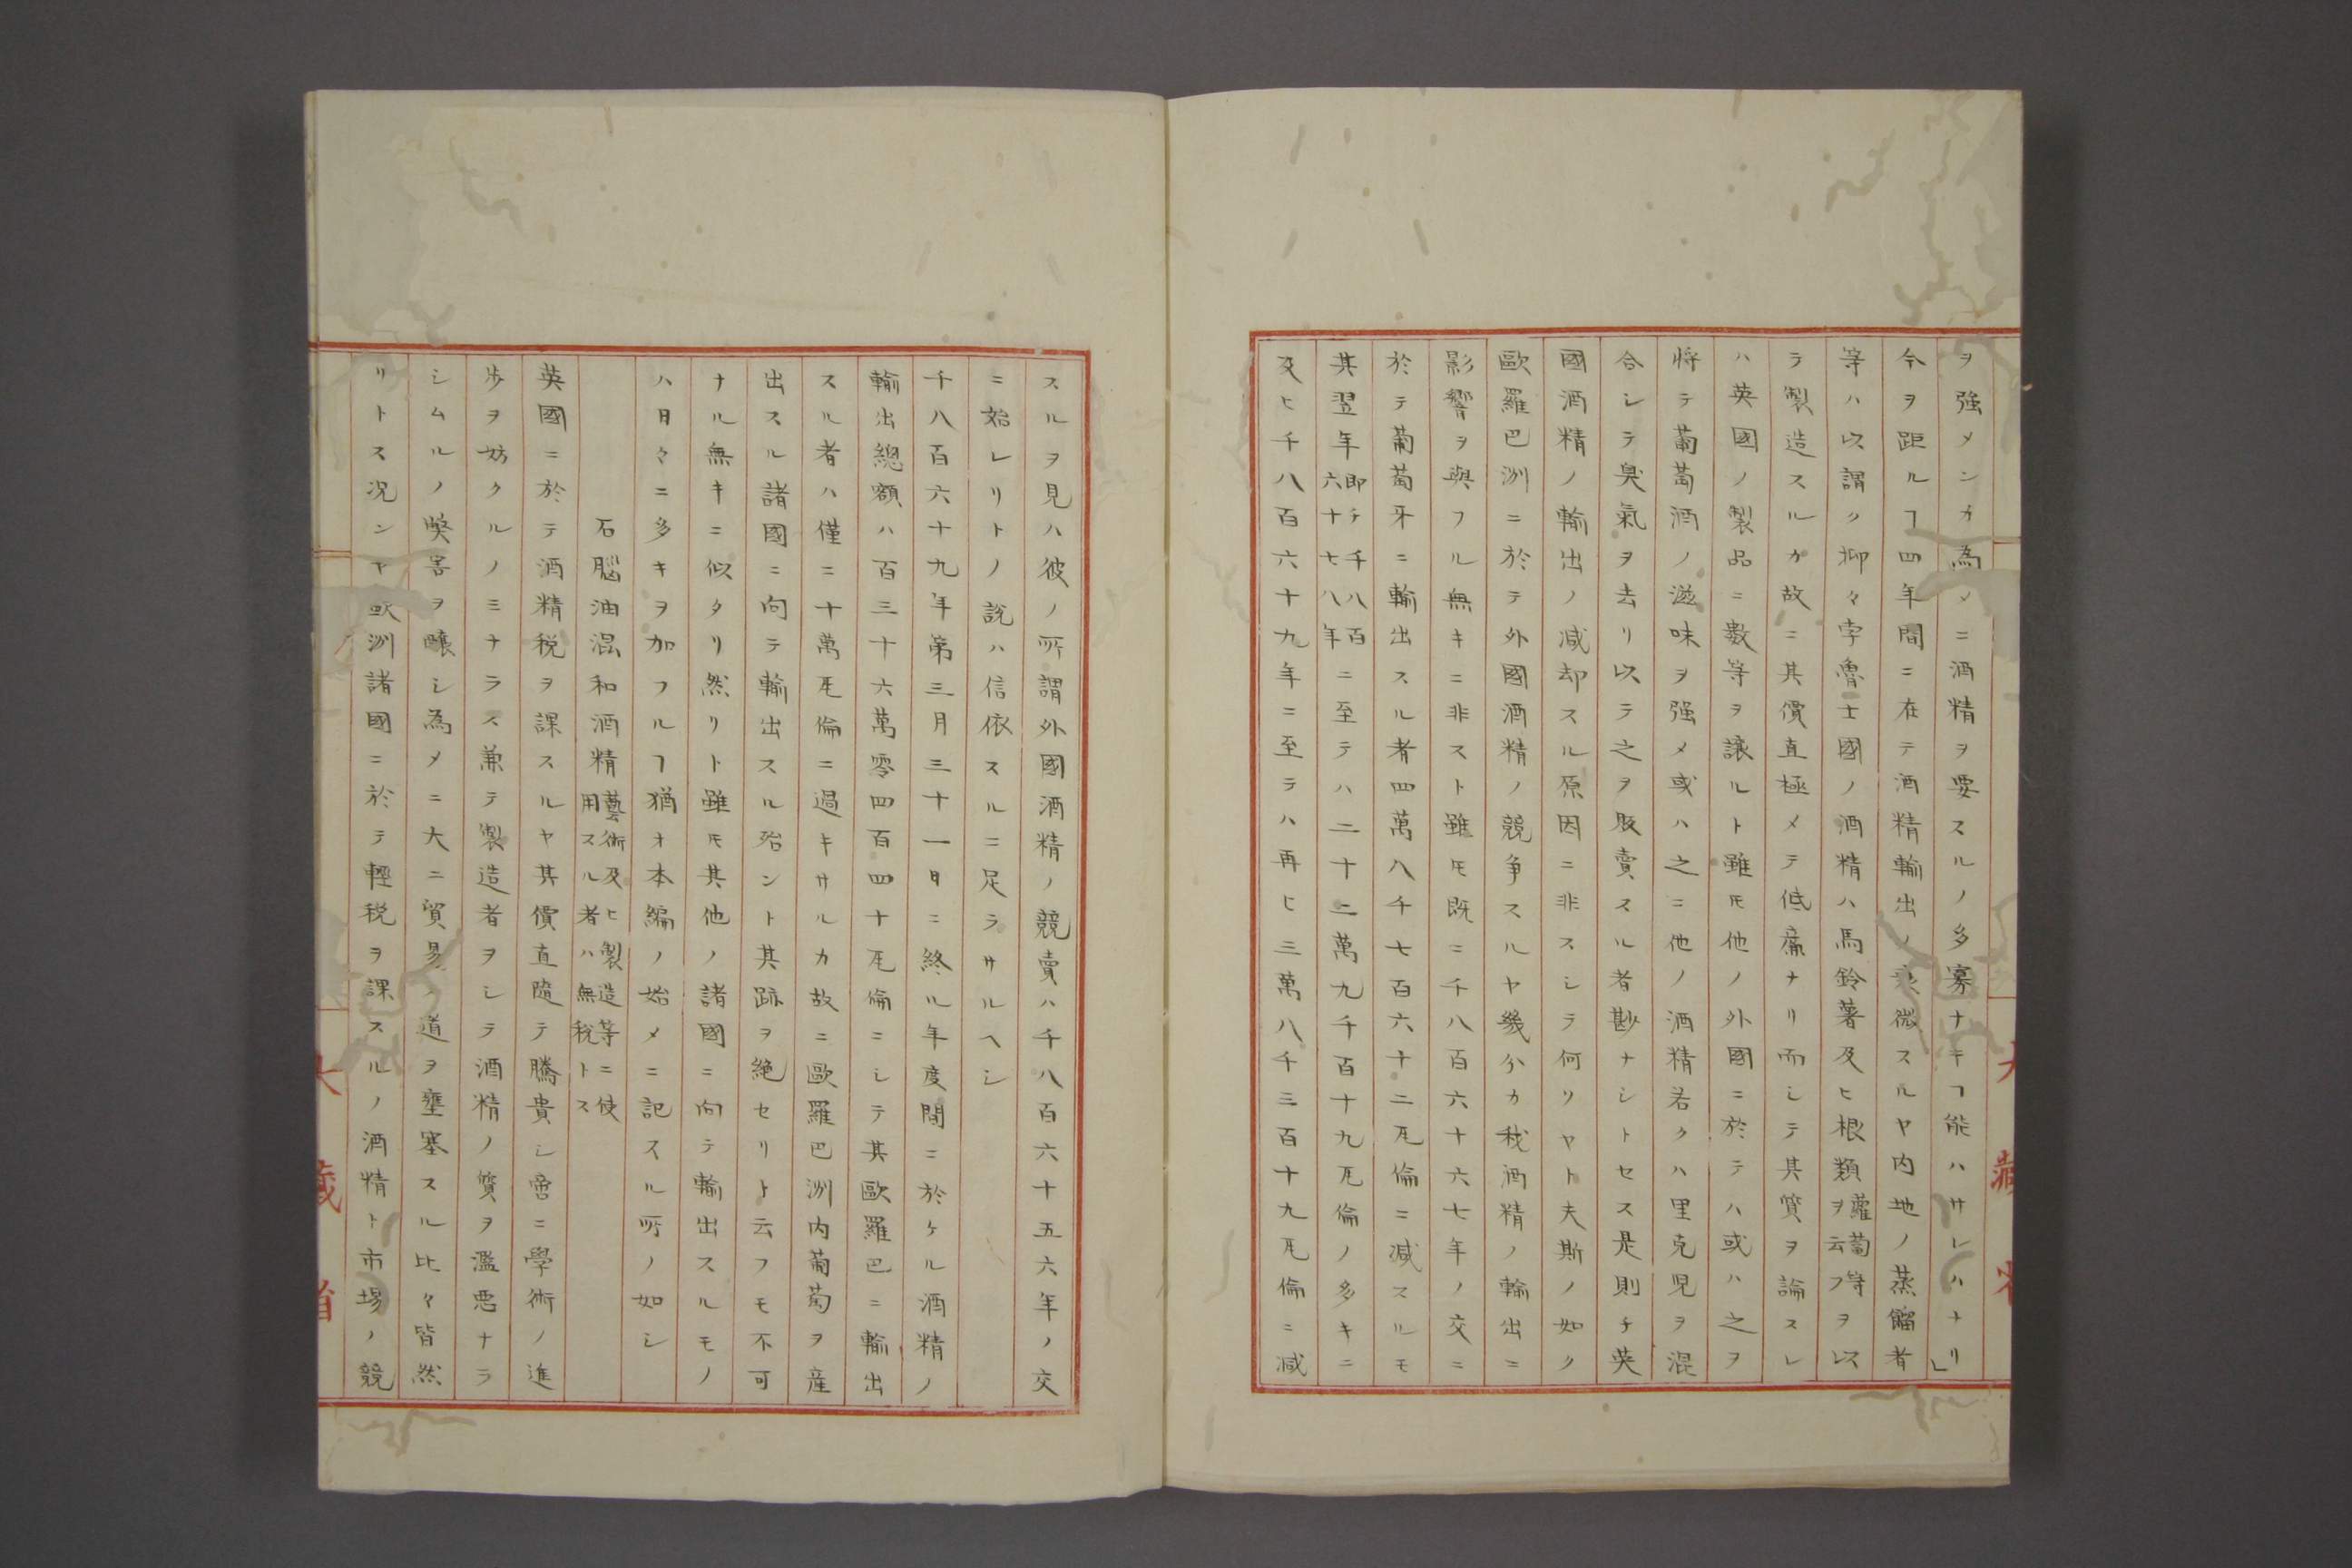 ヲ強メンカ為メニ酒精ヲ要スルノ多寡ナキヿ能ハサレハナリ」
今ヲ距ルヿ四年間ニ在テ酒精輸出ノ衰微スルヤ内地ノ蒸餾者
等ハ以謂ク抑々孛魯士國ノ酒精ハ馬鈴薯及ヒ根類蘿蔔等ヲ云フヲ以
テ製造スルカ故ニ其價直極メテ低廉ナリ而シテ其質ヲ論スレ
ハ英國ノ製品ニ数等ヲ讓ルト雖モ他ノ外國ニ於テハ或ハ之ヲ
将テ葡萄酒ノ滋味ヲ强メ或ハ之ニ他ノ酒精若クハ里克児ヲ混
合シテ臭氣ヲ去リ以テ之ヲ販賣スル者尠ナシトセス是則チ英
國酒精ノ輸出ノ减却スル原因ニ非スシテ何ソヤト夫斯ノ如ク
歐羅巴洲ニ於テ外國酒精ノ競争スルヤ幾分カ我酒精ノ輸出ニ
影響ヲ與フル無キニ非スト雖モ既ニ千八百六十六七年ノ交ニ
於テ葡萄牙ニ輸出スル者四萬八千七百六十二瓦倫ニ减スルモ
其翌年即チ千八百六十七八年ニ至テハ二十二萬九千百十九瓦倫ノ多キニ
及ヒ千八百六十九年ニ至テハ再ヒ三萬八千三百十九瓦倫ニ减
スルヲ見ハ彼ノ所謂外國酒精ノ競賣ハ千八百六十五六年ノ交
ニ始レリトノ說ハ信依スルニ足ラサルヘシ
千八百六十九年第三月三十一日ニ終ル年度間ニ於ケル酒精ノ
輸出總額ハ百三十六萬零四百四十瓦倫ニシテ其歐羅巴ニ輸出
スル者ハ僅ニ十萬瓦倫ニ過キサルカ故ニ歐羅巴洲内葡萄ヲ産
出スル諸國ニ向テ輸出スル殆ント其跡ヲ絶セリト云フモ不可
ナル無キニ似タリ然リト雖モ其他ノ諸國ニ向テ輸出スルモノ
ハ日々ニ多キヲ加フルヿ猶オ本編ノ始メニ記スル所ノ如シ
石腦油混和酒精藝術及ヒ製造等ニ使用スル者ハ無税トス
英國ニ於テ酒精税ヲ課スルヤ其價直随テ騰貴シ啻ニ學術ノ進
歩ヲ妨クルノミナラス兼テ製造者ヲシテ酒精ノ質ヲ濫悪ナラ
シムルノ獘害ヲ醸シ為メニ大ニ貿易ノ道ヲ壅塞スル比々皆然
リトス况ンヤ歐洲諸國ニ於テ輕税ヲ課スルノ酒精ト市場ノ競